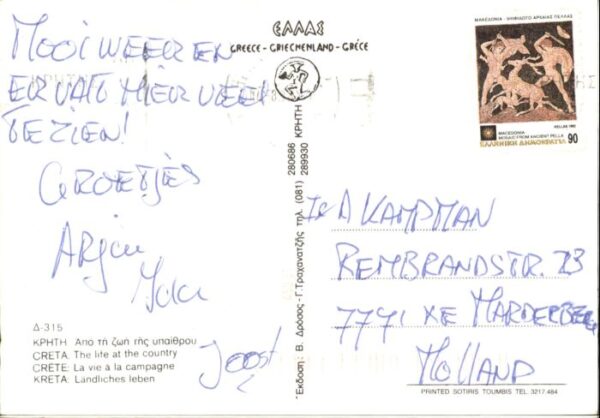 ΕΛΛΑΣ
GREECE - GRIECHENLAND - GRÉCE
MOOI WEER EN
ER VALT HIER VEEL
TE ZIEN!
GROETJES
ARJEN
Joost
Δ-315
ΚΡΗΤΗ Από τή ζωή τής υπαίθρου
CRETA: The life at the country
CRÈTE: La vie à la campagne
KRETA: Landliches leben
Εκδοση: Β. Δρόσος - Γ. Τραχανατζής τηλ. (081) 280686 289930 ΚΡΗΤΗ
ΜΑΚΕΔΟΝΙΑ - ΨΗΦΙΔΩΤΟ ΑΡΧΑΙΑΣ ΠΕΛΛΑΣ
HELLAS 1992
MACEDONIA
MOSAIC FROM ANCIENT PELLA
ΕΛΛΗΝΙΚΗ ΔΗΜΟΚΡΑΤΙΑ 90
KAMPMAN
REMBRANDSTR. 23
7791 XE MARDERBERG
HOLLAND
PRINTED SOTIRIS TOUMBIS TEL. 3217.484